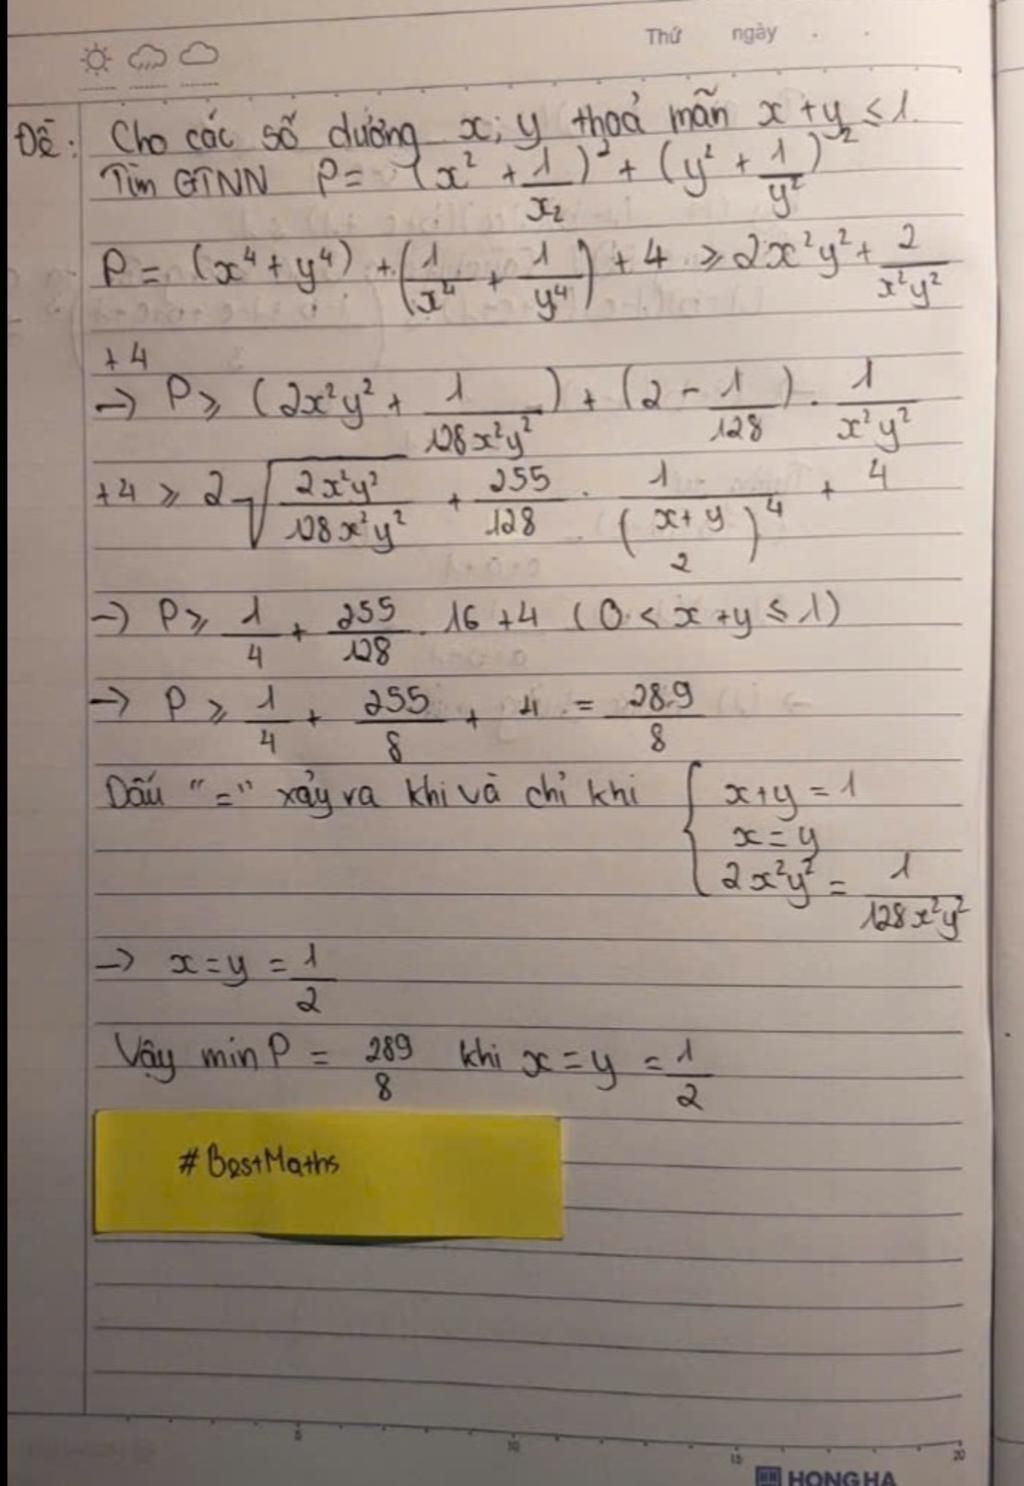 Thứ ngày
Đề: Cho các số dương x; y thoả mãn x + y ≤ 1.
Tìm GTNN P = (x² + 1/x2)² + (y² + 1/y²)²
P = (x⁴ + y⁴) + (1/x⁴ + 1/y⁴) + 4 ≥ 2x²y² + 2/x²y²
+ 4
→ P ≥ (2x²y² + 1/128x²y²) + (2 - 1/128) . 1/x²y²
+4 ≥ 2√(2x²y²/128x²y²) + 255/128 . 1/((x+y)/2)⁴ + 4
→ P ≥ 1/4 + 255/128 . 16 + 4 (0 < x + y ≤ 1)
→ P ≥ 1/4 + 255/8 + 4 = 289/8
Dấu "=" xảy ra khi và chỉ khi { x+y = 1
x = y
2x²y² = 1/128x²y²
→ x = y = 1/2
Vậy min P = 289/8 khi x = y = 1/2
#BestMaths
5 10 15 20
HONG HA